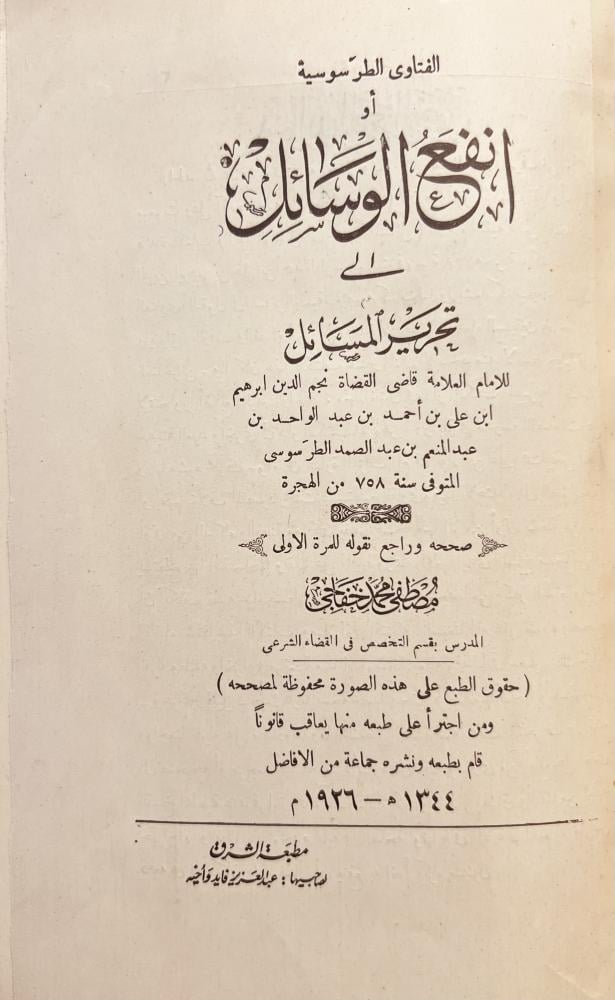 الفتاوى الطرسوسية
أو
انفع الوسائل
الى
تحرير المسائل
للامام العلامة قاضى القضاة نجم الدين ابرهيم
ابن على بن أحمد بن عبد الواحد بن
عبد المنعم بن عبد الصمد الطرسوسى
المتوفى سنة ٧٥٨ من الهجرة
صححه وراجع نقوله للمرة الاولى
مصطفى محمد خفاجى
المدرس بقسم التخصص فى القضاء الشرعى
( حقوق الطبع على هذه الصورة محفوظة لمصححه )
ومن اجترأ على طبعه منها يعاقب قانوناً
قام بطبعه ونشره جماعة من الافاضل
١٣٤٤ ه — ١٩٢٦ م
مطبعة الشرق
لصاحبيها : عبد العزيز فايد وأخيه